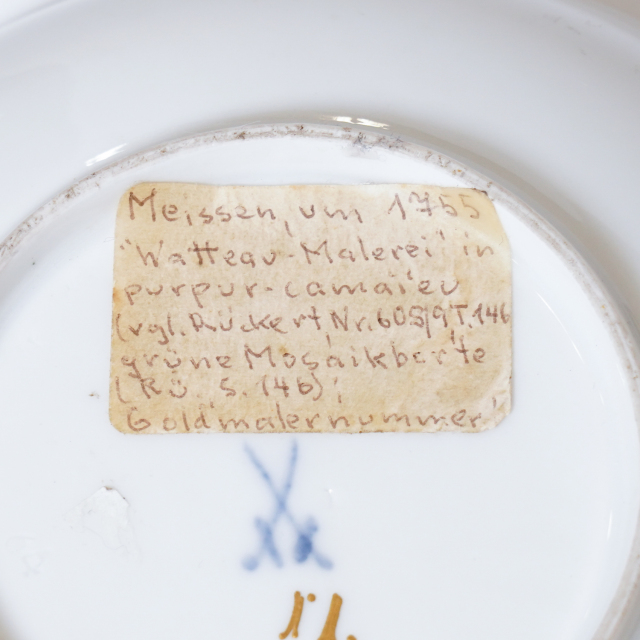 Meissen, um 1745
Watteau-Malerei in
purpur-camaieu
(vgl. Rückert Nr. 605, 9T. 146
grüne Mosaikbordüre
(Rü S. 146)
Goldmalernummer